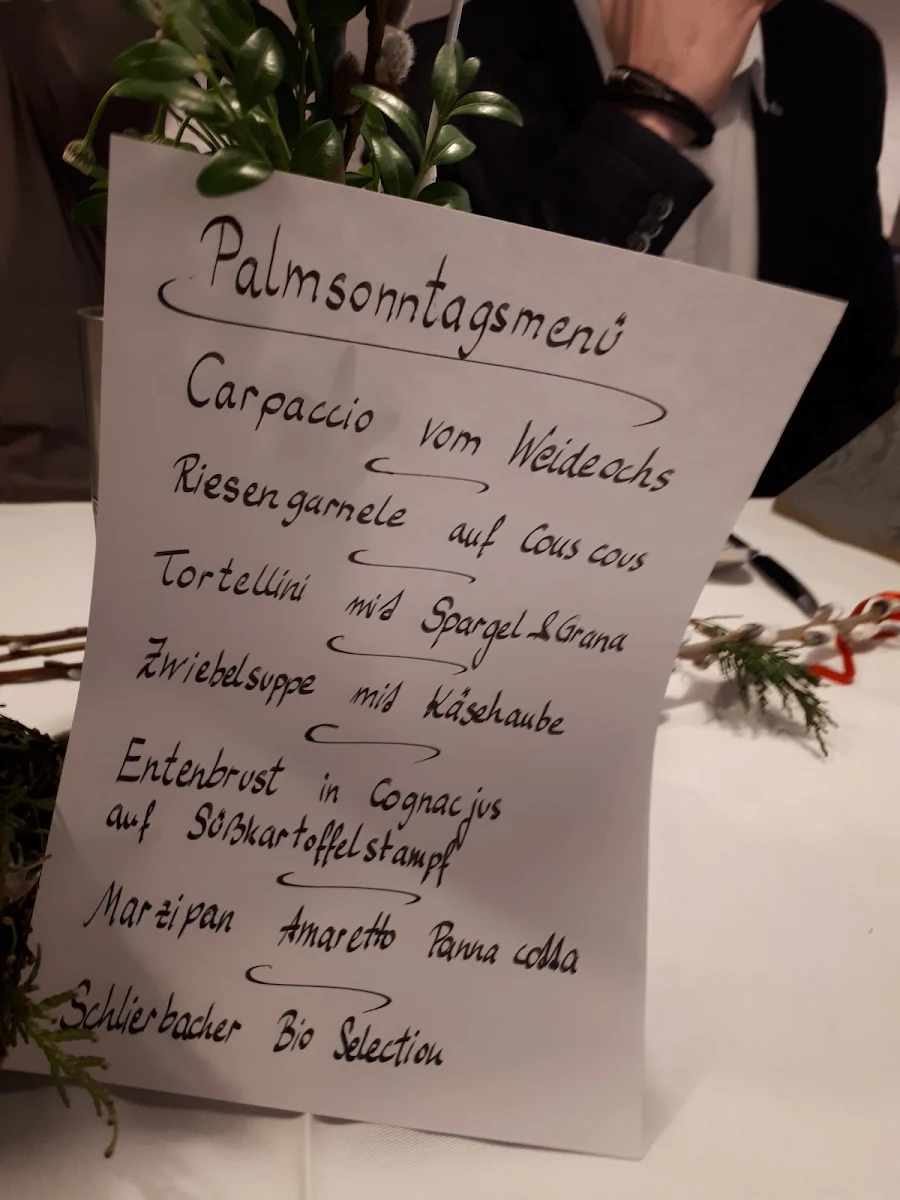 Palmsonntagsmenü
Carpaccio vom Weideochs
Riesengarnele auf Cous cous
Tortellini mit Spargel & Grana
Zwiebelsuppe mit Käsehaube
Entenbrust in Cognacjus
auf Süßkartoffelstampf
Marzipan Amaretto Panna cotta
Schlierbacher Bio Selection